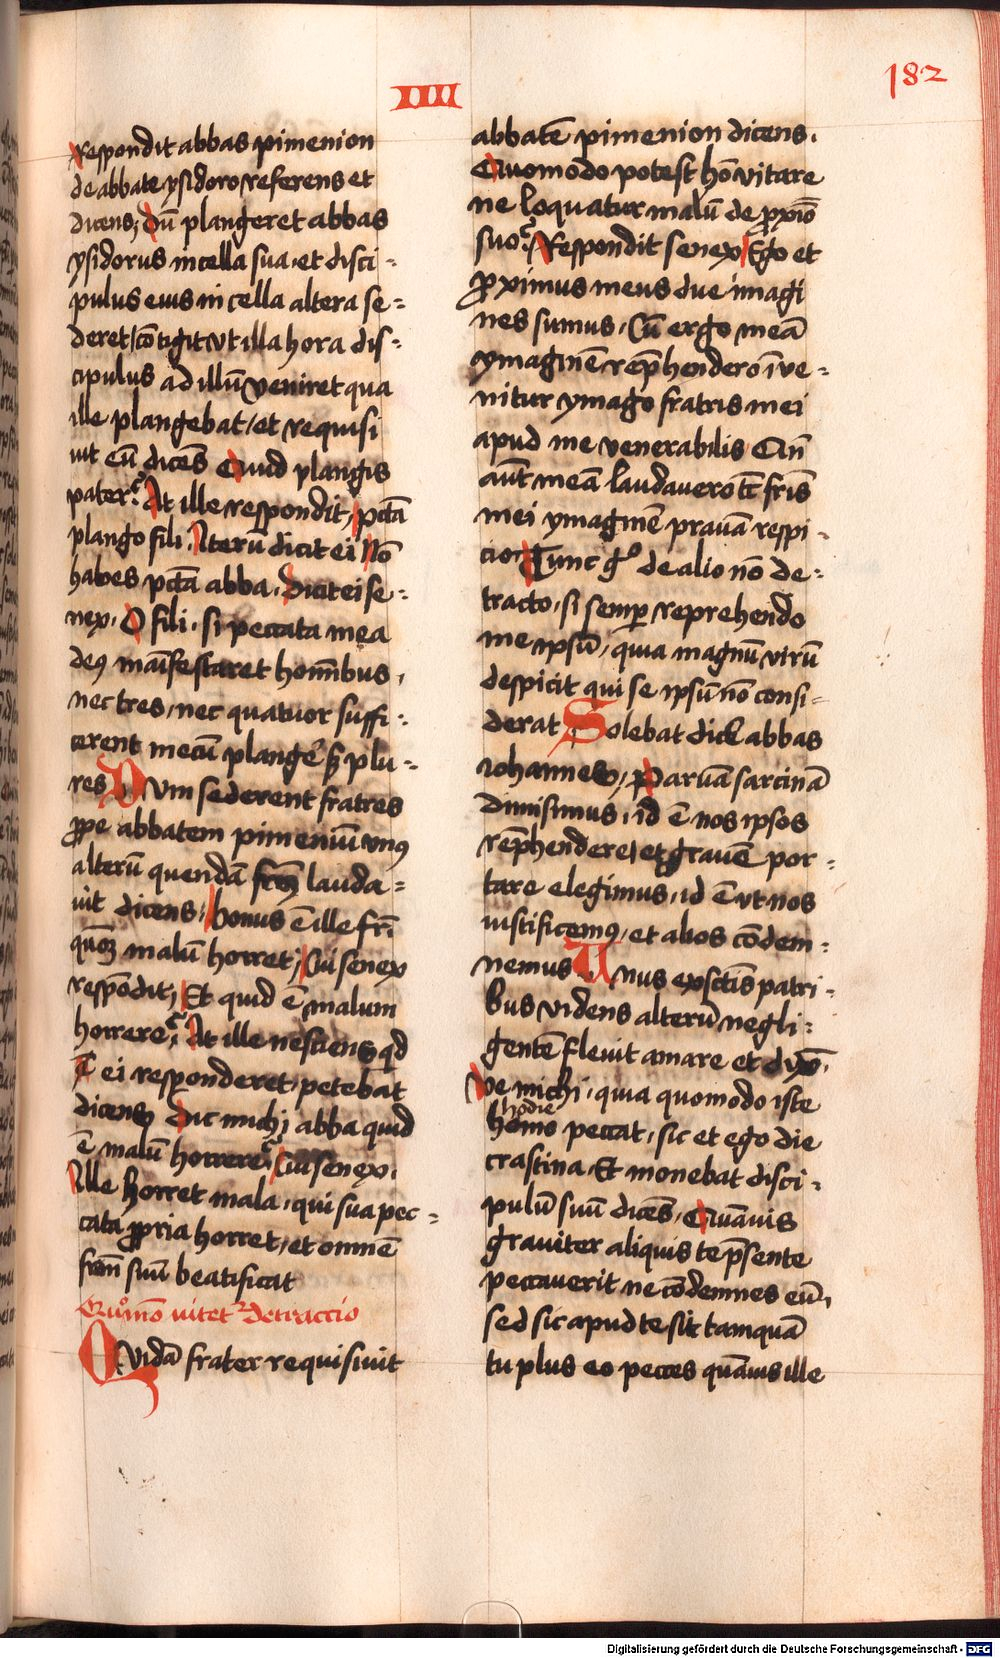 IIII
182
Respondit abbas pimenion
de abbate ysidoro referens et
dicens; Dū plangeret abbas
ysidorus in cella sua, et disci-
pulus eius in cella altera se-
deret/cōtigit vt illa hora dis-
cipulus ad illū veniret qua
ille plangebat/et requisi
uit eū dicēs Quid plangis
pater? At ille respondit, pctā
plango fili Iterū dicit ei Nō
habes pctā abba. Dicit ei se-
nex. O fili, si peccata mea
deꝰ māifestaret homībus,
nec tres, nec quatuor suffi-
cerent mecū plangēꝛ sꝫ plu-
res Dvm sederent fratres
ꝓpe abbatem pimeniū vnꝰ
alterū quendā frem lauda-
uit dicens, bonus ē ille fr̄.
quōꝫ malū horret; Cui senex
respōdit, Et quid ē malum
horrere? At ille nesciens qd
ei responderet, petebat
dicens Dic michi abba quid
ē malū horrere? Cui senex.
Ille horret mala, qui sua pec-
cata ꝓpria horret, et omnē
frem suū beatificat
Quōmō uitet Detraccio
Qvidā frater requisiuit
abbatē pimenion dicens.
Quomodo potest hō vitare
ne loquatur malū de ꝓxiō
suo? Respondit senex Ego et
ꝓximus meus due imagi
nes sumus, Cū ergo meā
ymaginē rep̄hendero īve-
nitur ymago fratris mei
apud me venerabilis Cū
aūt meā laudauero tc̄ fris
mei ymaginē prauā respi-
cio Tunc gͦ de alio nō de-
tracto, si semꝑ reprehendo
me ipsū, quia magnū virū
despicit qui se ipsū nō consi-
derat Solebat dicꝛ abbas
iohannes, Paruā sarcinā
dimisimus, id ē nos ipsos
rep̄hendere/et grauē por-
tare elegimus, id ē vt nos
iustificemꝰ, et alios cōdem-
nemus Vnus ex sctīs patri-
bus videns alterū negli-
gentē fleuit amare et dixͭ.
ve michi, quia quomodo iste
hodie
homo peccat, sic et ego die
crastina Et monebat disci-
pulū suū dicēs, Quāuis
grauiter aliquis te p̄sente
peccauerit ne cōdemnes eū,
sed sic apud te sit tamquā
tu plus eo pecces quāuis ille
Digitalisierung gefördert durch die Deutsche Forschungsgemeinschaft - DFG